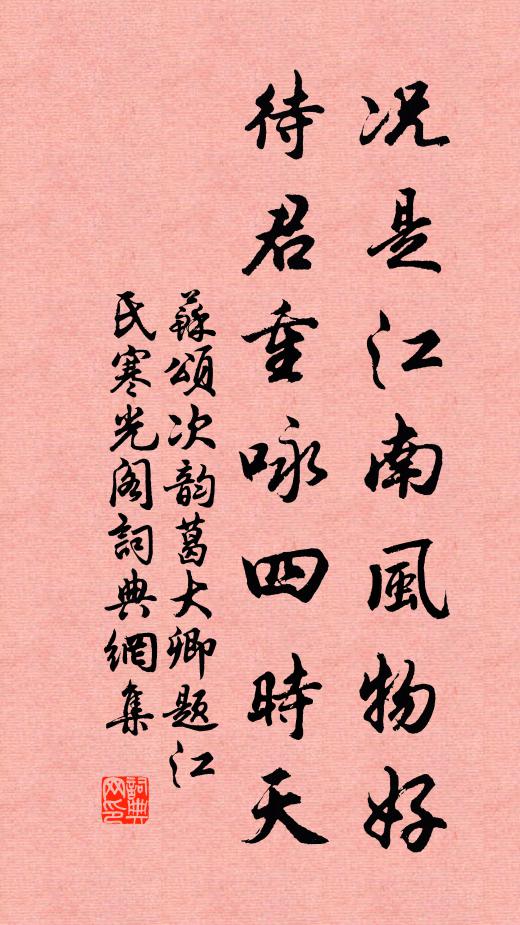 况是江南風物好
待君重咏四時天
蘇頌次韵葛大卿題江
民寒光阁詞典網集
詞典
网印